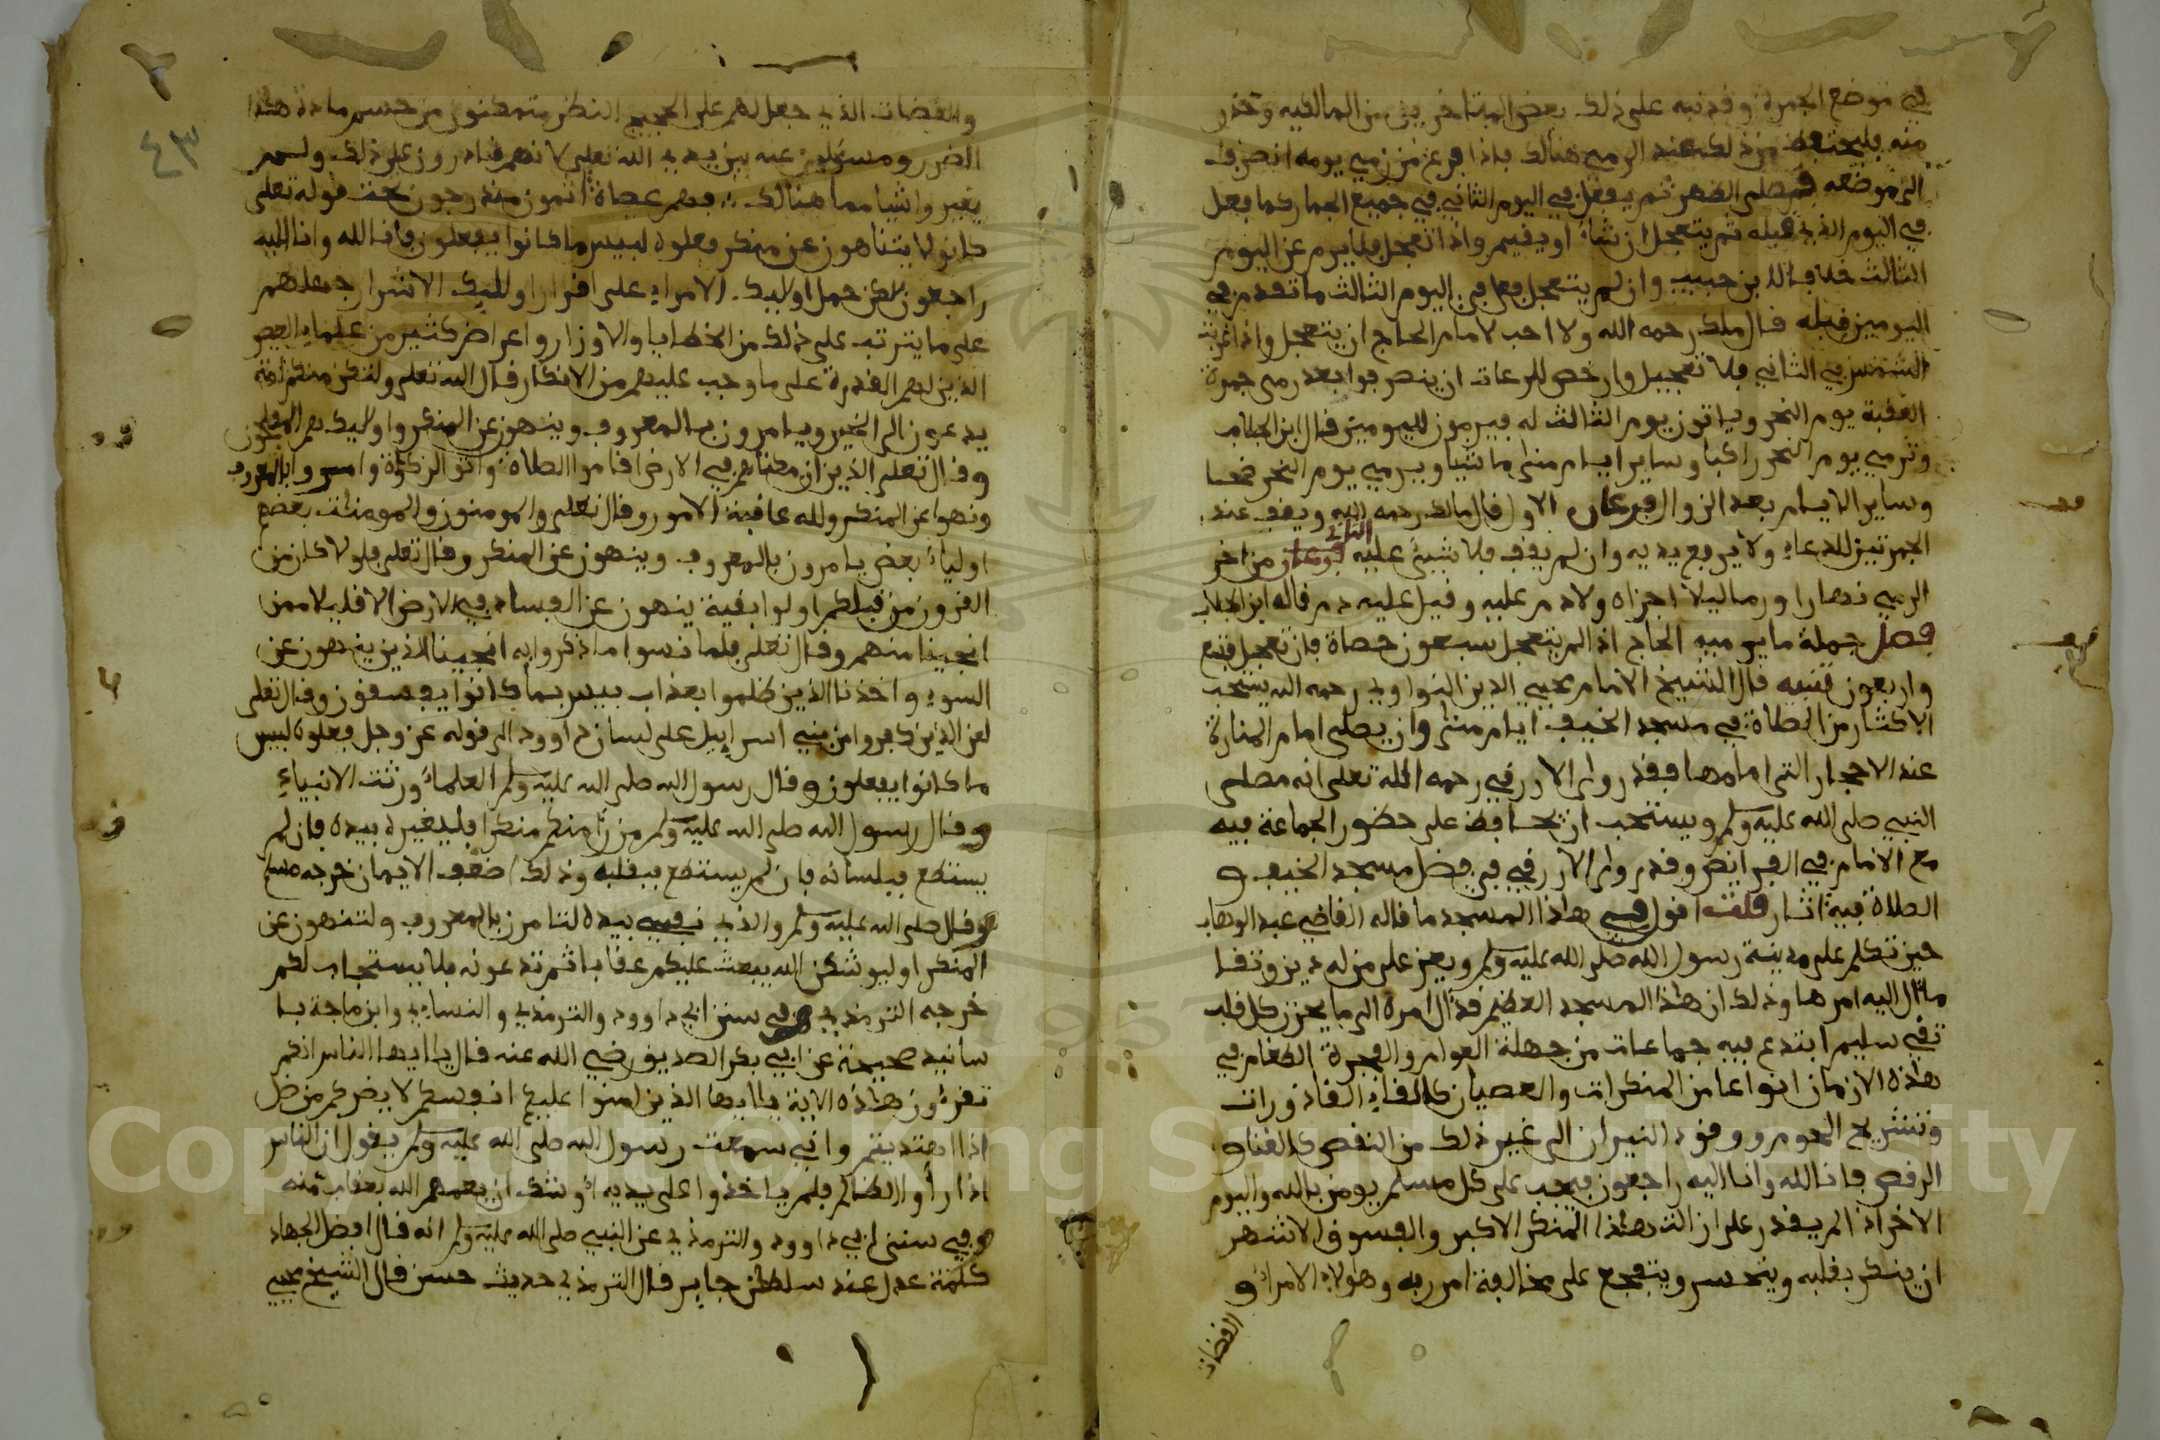 في موضع الجمرة وقد نبه على ذلك بعض المتاخرين من المالكية وحذر
منه فليحتفظ من ذلك عند الرمي هنالك فاذا فرغ من رمي يومه انصرف
الى موضعه فيصلى الظهر ثم يفعل في اليوم الثاني في جميع الجمار كما فعل
في اليوم الذي قبله ثم يتعجل ان شاء او يقيم واذا تعجل فلا يرم عن اليوم
الثالث خلافا لابن حبيب وان لم يتعجل رمى في اليوم الثالث ما تقدم في
اليومين قبله قال ملك رحمه الله ولا احب لامام الحاج ان يتعجل واذا غربت
الشمس في الثاني فلا تعجيل وارخص للرعات ان ينصرفوا بعد رمى جمرة
العقبة يوم النحر وياتون يوم الثالث له فيرمون لليومين قال ابن الجلاب
وترمي يوم النحر راكبا وساير ايام منى ماشيا ويرمي يوم النحر ضحا
وساير الايام بعد الزوال فرعان الاول قال مالك رحمه الله ويقف عند
الجمرتين للدعاء ولا يرفع يديه وان لم يقف فلا شيئ عليه الثاني من اخر
الرمي نهارا ورما ليلا اجزاه ولا دم عليه وقيل عليه دم قاله ابن الجلاب
فصل جملة ما يرميه الحاج اذا لم يتعجل سبعون حصاة فان تعجل فتسع
واربعون تنبيه قال الشيخ الامام محيي الدين النواوي رحمه الله يستحب
الاكثار من الصلاة في مسجد الخيف ايام منى وان يصلى امام المنارة
عند الاحجار التى امامها فقد روى الازرقي رحمه الله تعلى انه مصلى
النبي صلى الله عليه وسلم ويستحب ان يحافظ على حضور الجماعة فيه
مع الامام في الفرائض وقد روى الازرقي في فضل مسجد الخيف و
الصلاة فيه اثار قلت اقول في هاذا المسجد ما قاله القاضي عبد الوهاب
حين تكلم على مدينة رسول الله صلى الله عليه وسلم ويعز على من له دين وتقا
ما آل اليه امرها وذلك ان هذا المسجد العظيم قد آل امره الى ما يحزن كل قلب
تقي سليم ابتدع فيه جماعات من جهلة العوام والفجرة الطغام في
هاذه الازمان انواعا من المنكرات والعصيان كالقاء القاذورات
وتشريح اللحوم ووقود النيران الى غير ذلك من النقص كالغناء و
الرقص فانا لله وانا اليه راجعون فيجب على كل مسلم يومن بالله واليوم
الاخر اذا لم يقدر على ازالت هذا المنكر الاكبر والفسوق الاشهر
ان ينكر بقلبه ويتحسر ويتفجع على مخالفة امر ربه وهولاء الامراء و
القضات
٤٣
والقضات الذي جعل لهم على الحجيج النظر متمكنون من حسم مادة هذا
الضرر ومسئلون عنه بين يدي الله تعلى لانهم قادرون على ذلك ولم
يغيروا شيا مما هنالك فهم عصاة اثمون مندرجون تحت قوله تعلى
كانوا لا يتناهون عن منكر فعلوه لبيس ما كانوا يفعلون فانا لله وانا اليه
راجعون لاكن حمل اوليك الامراء على اقرار اوليك الاشرار جهلهم
على ما يترتب على ذلك من الخطايا والاوزار واعراض كثير من علماء العصر
الذين لهم القدرة على ما وجب عليهم من الانكار قال الله تعلى ولتكن منكم امة
يدعون الى الخير ويامرون بالمعروف وينهون عن المنكر واوليك هم المفلحون
وقال تعلى الذين ان مكناهم في الارض اقاموا الصلاة واتوا الزكاة وامروا بالمعروف
ونهوا عن المنكر ولله عاقبة الامور وقال تعلى والمومنون والمومنات بعضهم
اولياء بعض يامرون بالمعروف وينهون عن المنكر وقال تعلى فلولا كان من
القرون من قبلكم اولوا بقية ينهون عن الفساد في الارض الا قليلا ممن
انجينا منهم وقال تعلى فلما نسوا ما ذكروا به انجينا الذين ينهون عن
السوء واخذنا الذين ظلموا بعذاب بييس بما كانوا يفسقون وقال تعلى
لعن الذين كفروا من بني اسراييل على لسان داوود الى قوله عز وجل فعلوه لبيس
ما كانوا يفعلون وقال رسول الله صلى الله عليه وسلم العلماء ورثت الانبياء
وقال رسول الله صلى الله عليه وسلم من رأ منكم منكرا فليغيره بيده فان لم
يستطع فبلسانه فان لم يستطع فبقلبه وذلك اضعف الايمان خرجه مسلم
وقال صلى الله عليه وسلم والذي نفسي بيده لتامرن بالمعروف ولتنهون عن
المنكر او ليوشكن الله يبعث عليكم عقابا ثم تدعونه فلا يستجاب لكم
خرجه الترمذي وفي سنن ابي داوود والترمذي والنساءي وابن ماجة با
سانيد صحيحة عن ابي بكر الصديق رضي الله عنه قال يا ايها الناس انكم
تقرءون هاذه الاية يا ايها الذين امنوا عليكم انفسكم لا يضركم من ضل
اذا اهتديتم واني سمعت رسول الله صلى الله عليه وسلم يقول ان الناس
اذا رأوا الظالم فلم ياخذوا على يديه اوشك ان يعمهم الله بعقاب منه
وفي سنن ابي داوود والترمذي عن النبي صلى الله عليه وسلم انه قال افضل الجهاد
كلمة عدل عند سلطن جاير قال الترمذي حديث حسن قال الشيخ محيي
Copyright © King S ity